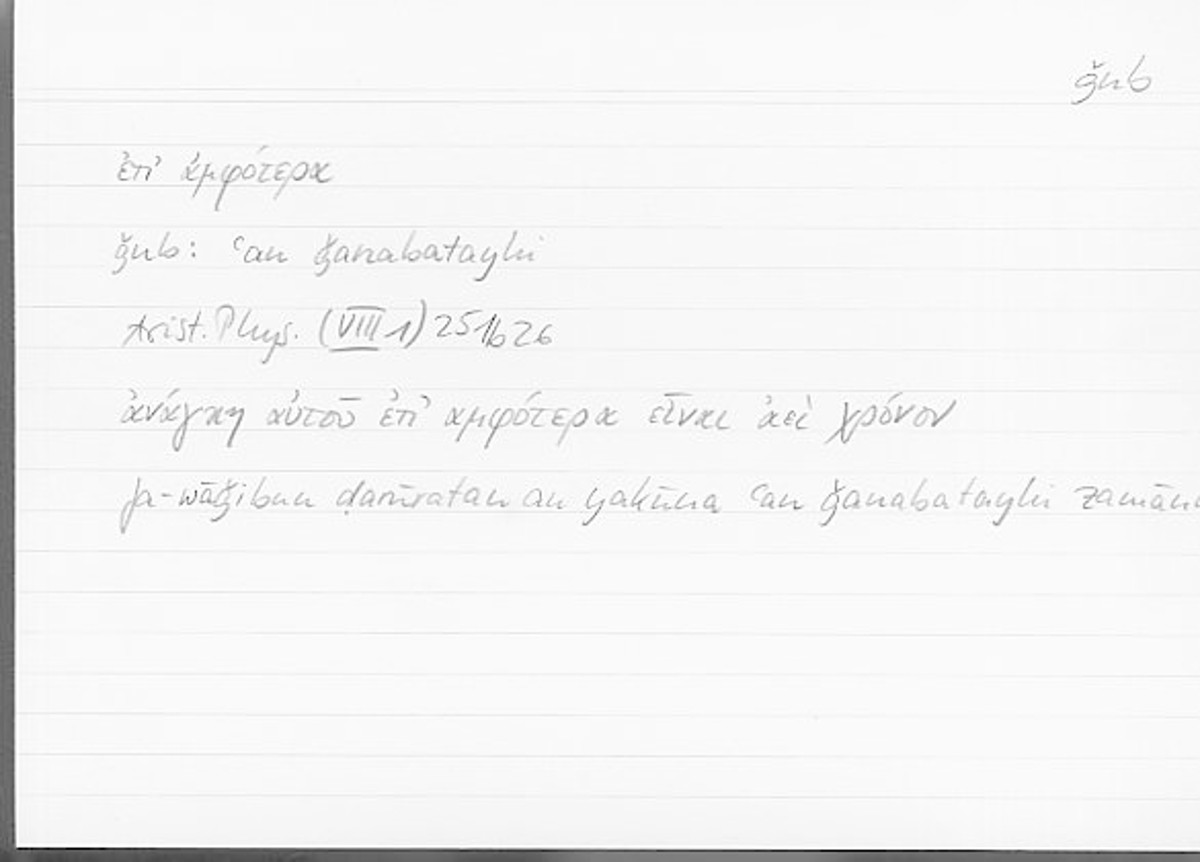 ǧnb
ἐπ' ἀμφότερα
ǧnb: ʿan ǧanabatayhi
Arist. Phys. (VIII 1) 251b26
ἀνάγκη αὐτοῦ ἐπ' ἀμφότερα εἶναι ἀεὶ χρόνον
fa-wāǧibun ḍarūratan an yakūna ʿan ǧanabatayhi zamānu